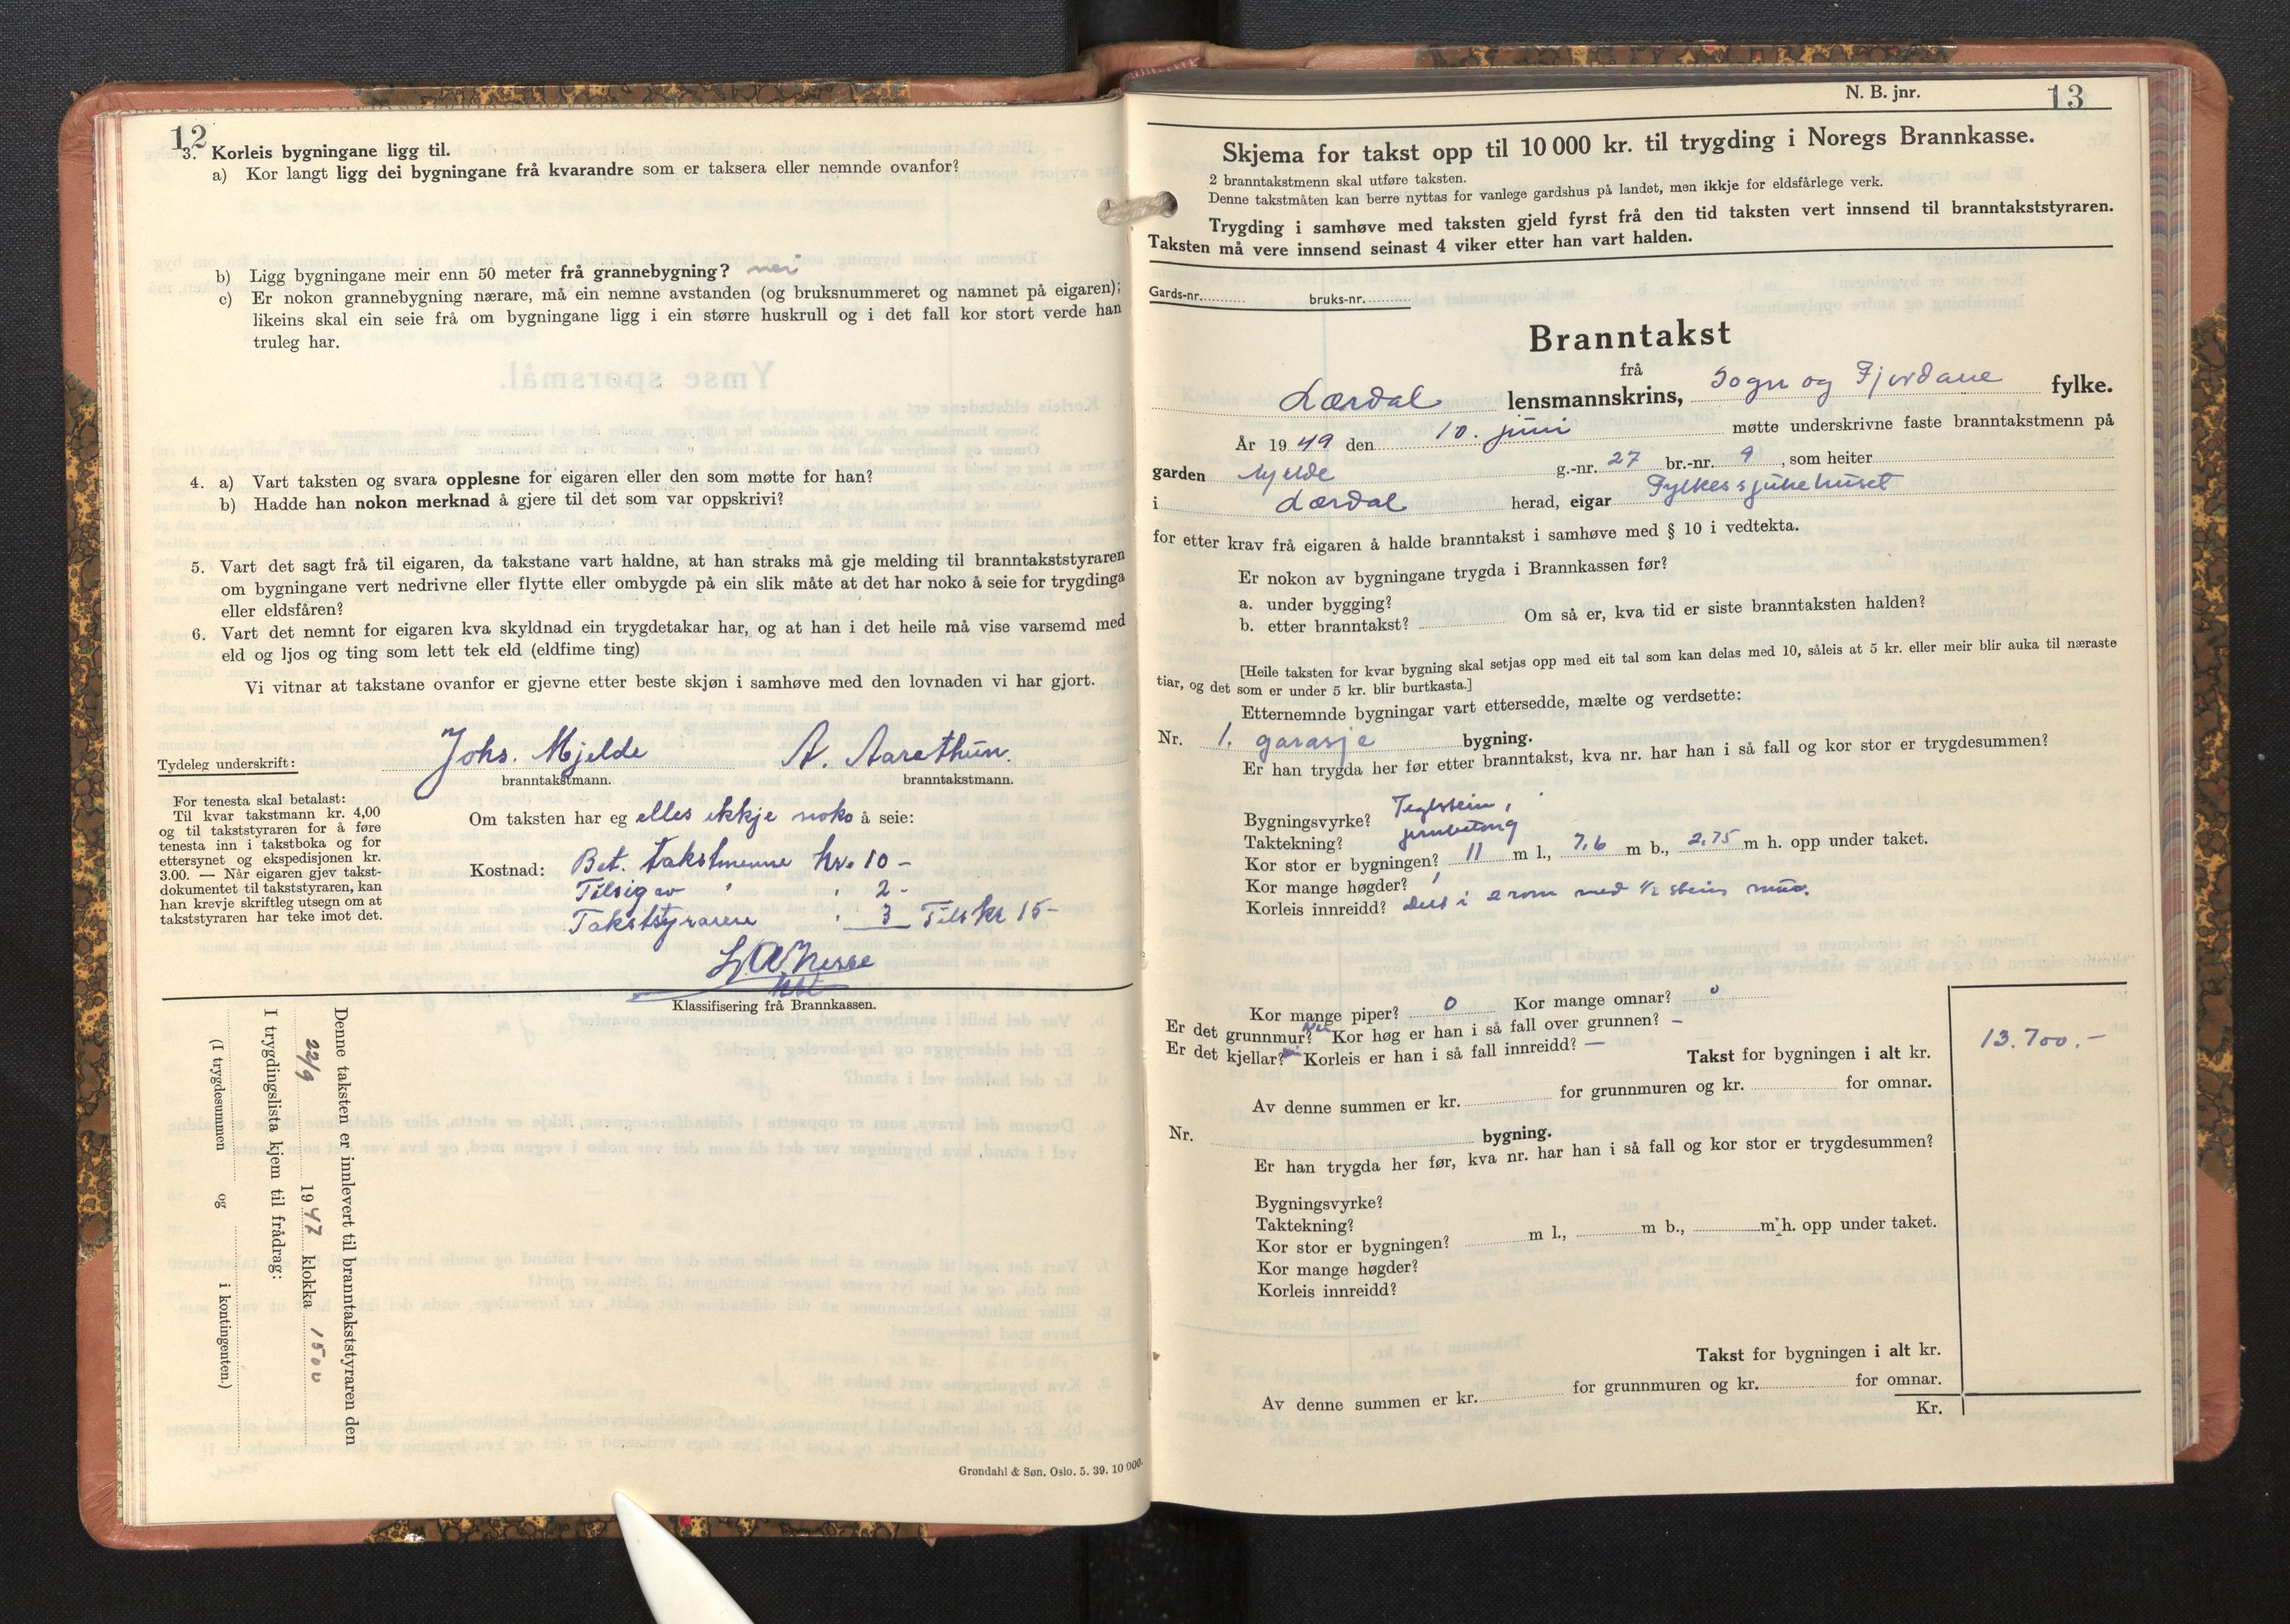 12
3. Korleis bygningane ligg til.
a) Kor langt ligg dei bygningane frå kvarandre som er taksera eller nemnde ovanfor?
b) Ligg bygningane meir enn 50 meter frå grannebygning? nei
c) Er nokon grannebygning nærare, må ein nemne avstanden (og bruksnummeret og namnet på eigaren);
likeins skal ein seie frå om bygningane ligg i ein større huskrull og i det fall kor stort verde han
truleg har.
4. a) Vart taksten og svara opplesne for eigaren eller den som møtte for han?
b) Hadde han nokon merknad å gjere til det som var oppskrivi?
5. Vart det sagt frå til eigaren, da takstane vart haldne, at han straks må gje melding til branntakststyraren
om bygningane vert nedrivne eller flytte eller ombygde på ein slik måte at det har noko å seie for trygdinga
eller eldsfåren?
6. Vart det nemnt for eigaren kva skyldnad ein trygdetakar har, og at han i det heile må vise varsemd med
eld og ljos og ting som lett tek eld (eldfime ting)
Vi vitnar at takstane ovanfor er gjevne etter beste skjøn i samhøve med den lovnaden vi har gjort.
Tydeleg underskrift: Johs. Mjelde A. Aarethun.
branntakstmann. branntakstmann.
For tenesta skal betalast:
Til kvar takstmann kr. 4,00
og til takststyraren for å føre
tenesta inn i takstboka og for
ettersynet og ekspedisjonen kr.
3.00. — Når eigaren gjev takst-
dokumentet til takststyraren, kan
han krevje skriftleg utsegn om at
takststyraren har teke imot det.
Om taksten har eg elles ikkje noko å seie:
Kostnad: Bet. takstmenne kr. 10 -
Tilsig av " " 2 -
Takstyraren " 3 Tils kr 15-
Klassifisering frå Brannkassen.
Denne taksten er innlevert til branntakststyraren den
22/9 1947 klokka 1500
I trygdingslista kjem til frådrag:
(I trygdesummen og i kontingenten.)
Grøndahl & Søn, Oslo. 5. 39. 10 000.
N. B. jnr. 13
Skjema for takst opp til 10 000 kr. til trygding i Noregs Brannkasse.
2 branntakstmenn skal utføre taksten.
Denne takstmåten kan berre nyttas for vanlege gardshus på landet, men ikkje for eldsfårlege verk.
Trygding i samhøve med taksten gjeld fyrst frå den tid taksten vert innsend til branntakststyraren.
Taksten må vere innsend seinast 4 viker etter han vart halden.
Gards-nr. bruks-nr.
Branntakst
frå
Lærdal lensmannskrins, Sogn og Fjordane fylke.
År 1949 den 10. juni møtte underskrivne faste branntakstmenn på
garden Mjelde g.-nr. 27 br.-nr. 9, som heiter
i Lærdal herad, eigar Fylkessjukehuset
for etter krav frå eigaren å halde branntakst i samhøve med § 10 i vedtekta.
Er nokon av bygningane trygda i Brannkassen før?
a. under bygging?
b. etter branntakst? Om så er, kva tid er siste branntaksten halden?
[Heile taksten for kvar bygning skal setjas opp med eit tal som kan delas med 10, såleis at 5 kr. eller meir blir auka til næraste
tiar, og det som er under 5 kr. blir burtkasta.]
Etternemnde bygningar vart ettersedde, mælte og verdsette:
Nr. 1. garasje bygning.
Er han trygda her før etter branntakst, kva nr. har han i så fall og kor stor er trygdesummen?
Bygningsvyrke? Teglstein,
Taktekning? jernbetong
Kor stor er bygningen? 11 m l., 7,6 m b., 2,75 m h. opp under taket.
Kor mange høgder? 1
Korleis innreidd? Delt i 2 rom med 1/2 steins mur.
Kor mange piper? 0 Kor mange omnar? 0
Er det grunnmur? Nei Kor høg er han i så fall over grunnen? —
Er det kjellar? Korleis er han i så fall innreidd? —
Takst for bygningen i alt kr. 13.700.-
Av denne summen er kr. for grunnmuren og kr. for omnar.
Nr. bygning.
Er han trygda her før, kva nr. har han i så fall og kor stor er trygdesummen?
Bygningsvyrke?
Taktekning?
Kor stor er bygningen? m l., m b., m h. opp under taket.
Kor mange høgder?
Korleis innreidd?
Takst for bygningen i alt kr.
Av denne summen er kr. for grunnmuren og kr. for omnar.
Kr.